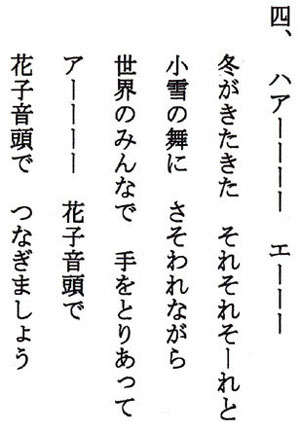 四、ハアーーーー　エーーー
冬がきたきた　それそれそーれと
小雪の舞に　さそわれながら
世界のみんなで　手をとりあって
アーーーー　花子音頭で
花子音頭で　つなぎましょう